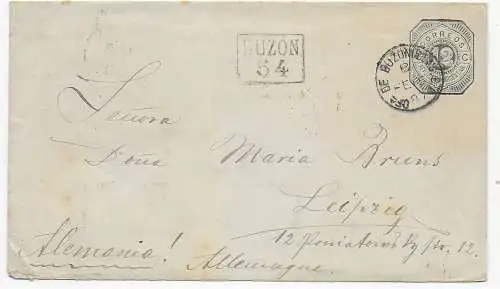 BUZON
54
CORREOS
DE BUZONISTAS
Señora
Doña Maria Bruns
Leipzig
12 Poniatowsky str. 12.
Alemania!
Allemagne.